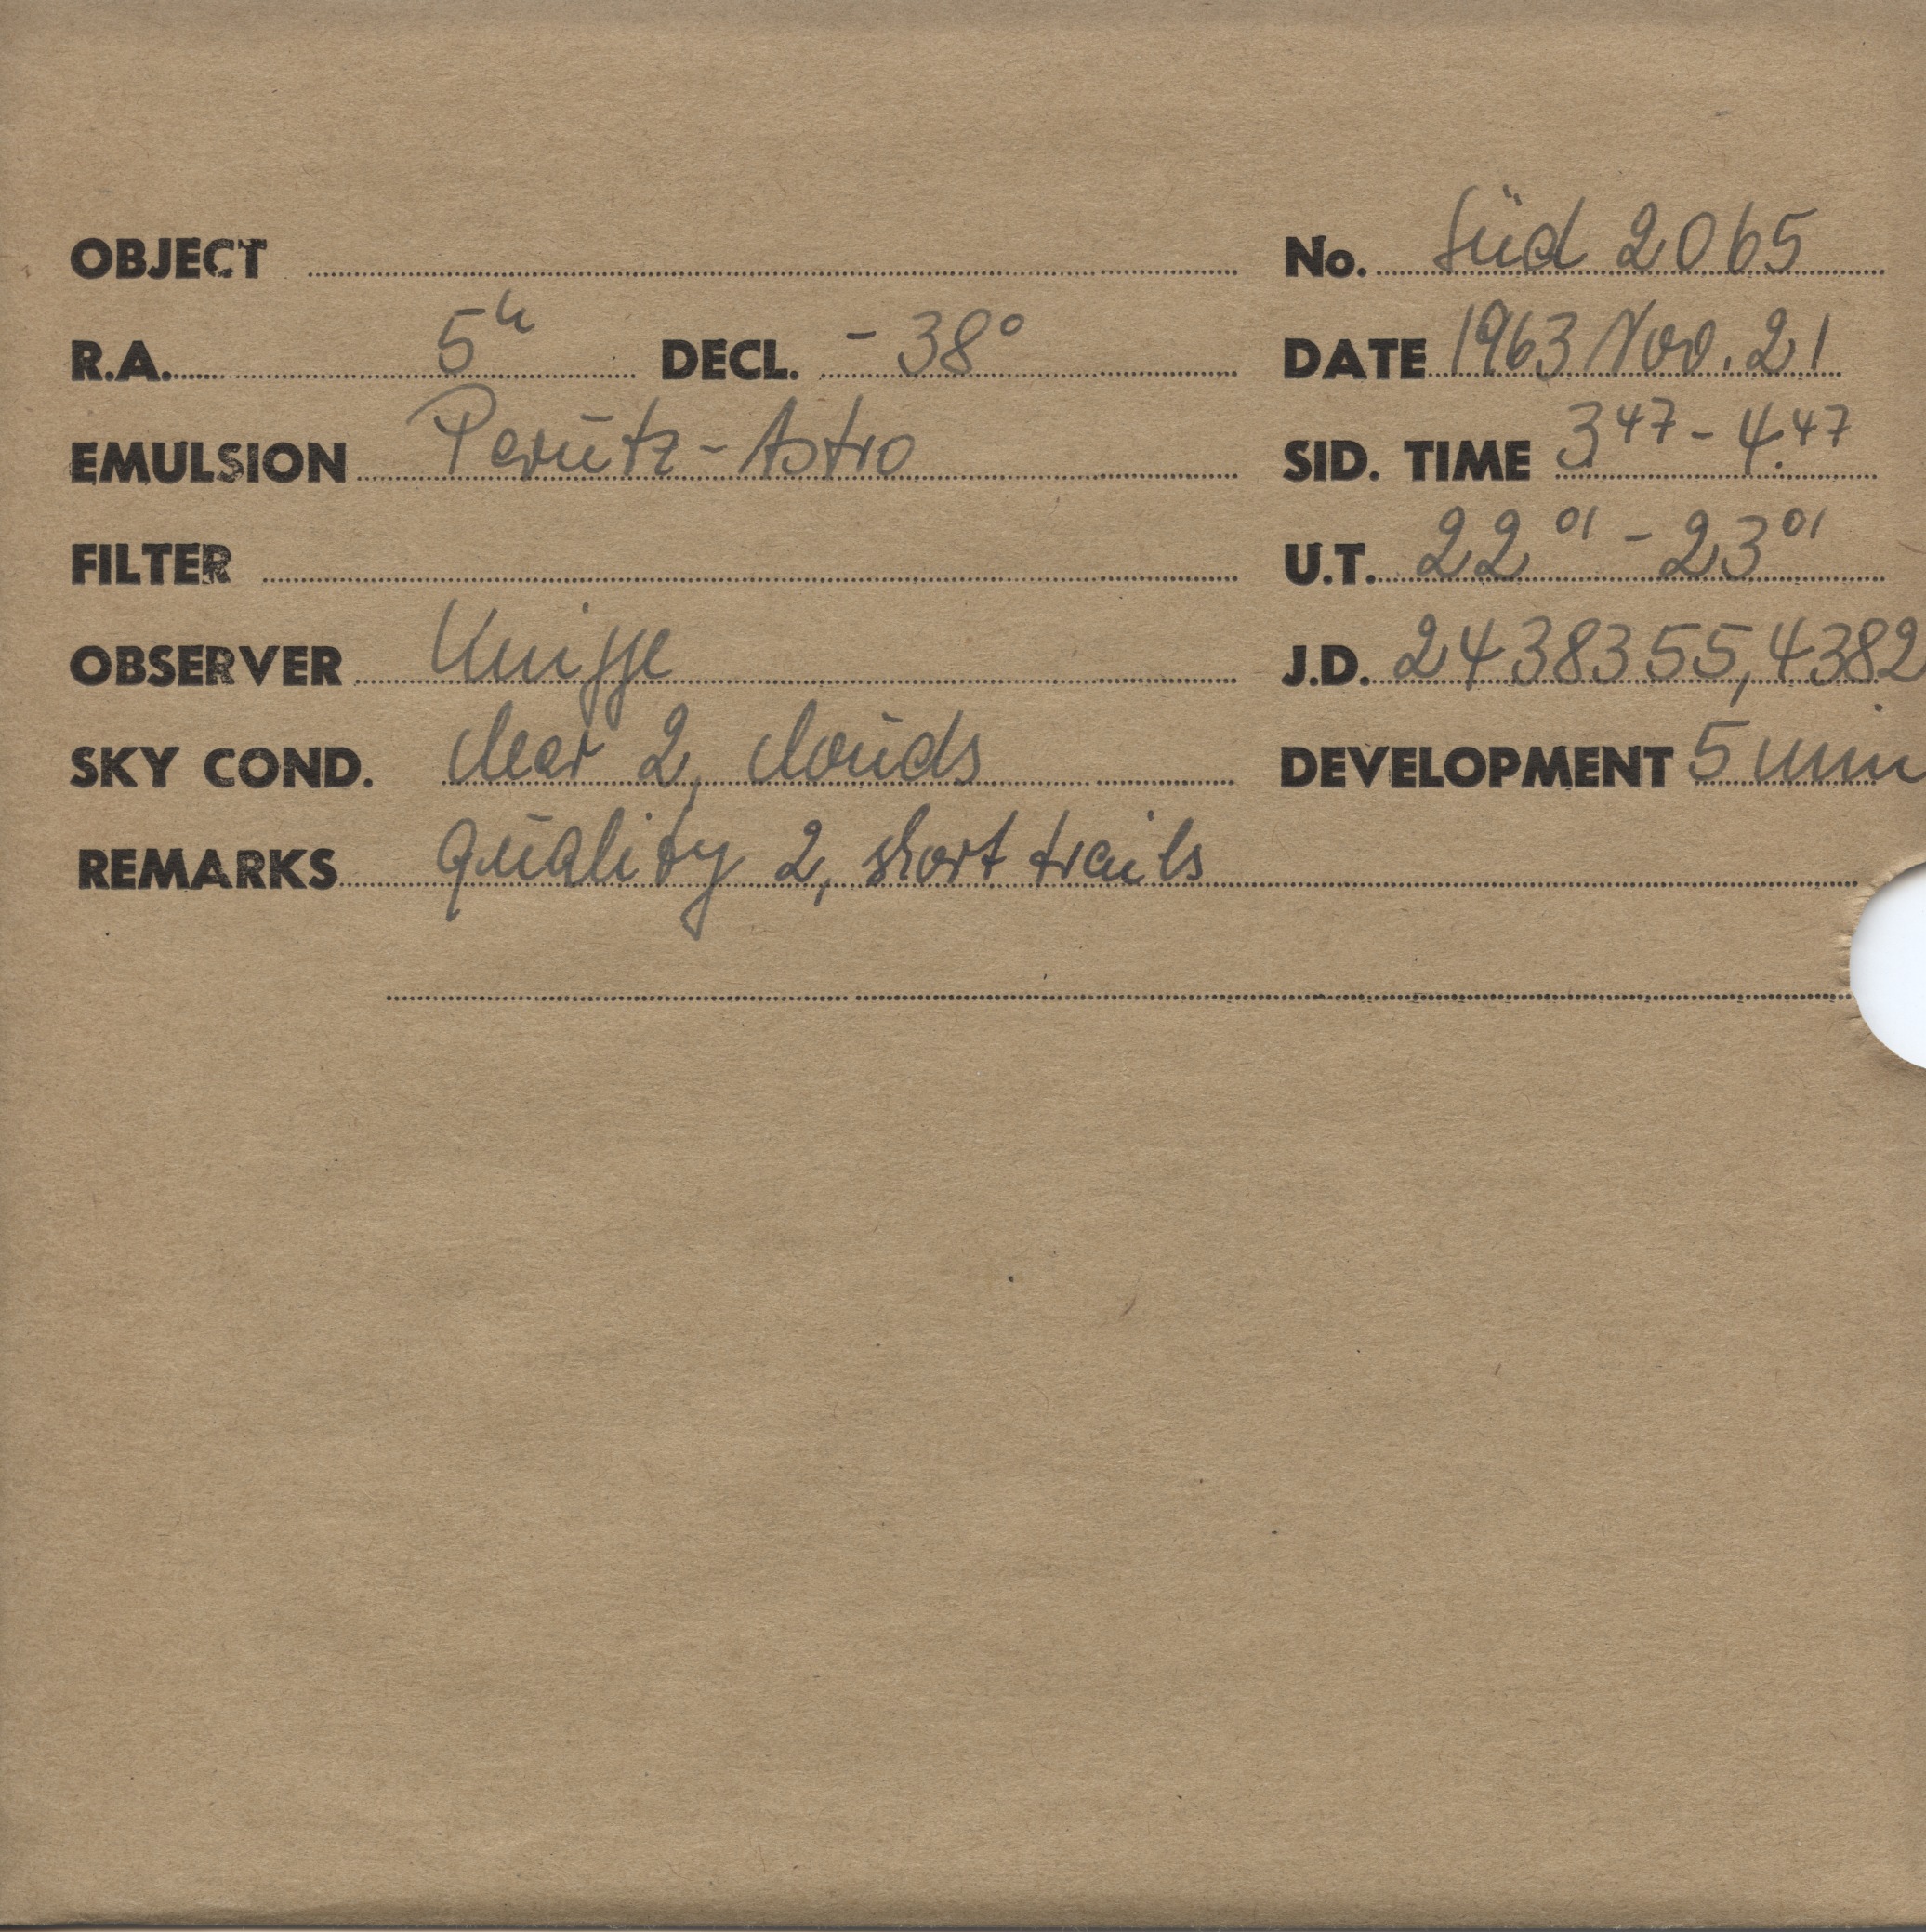 OBJECT No. Süd 2065
R.A. 5h DECL. -38° DATE 1963 Nov. 21
EMULSION Perutz-Astro SID. TIME 3 47 - 4 47
FILTER U.T. 22 01 - 23 01
OBSERVER Knigge J.D. 2438355,4382
SKY COND. clear 2, clouds DEVELOPMENT 5 min
REMARKS quality 2, short trails